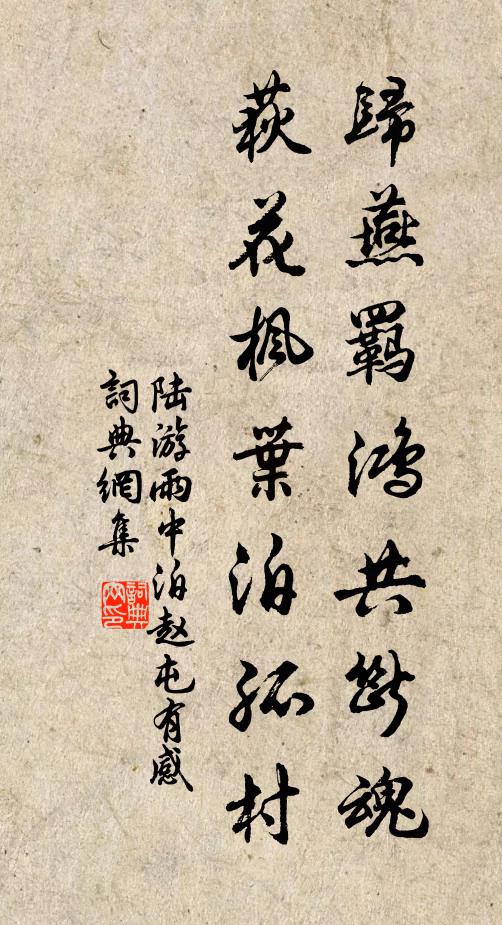 歸燕羈鴻共斷魂
荻花楓葉泊孤村
陆游雨中泊赵屯有感
詞典網集
詞典网印